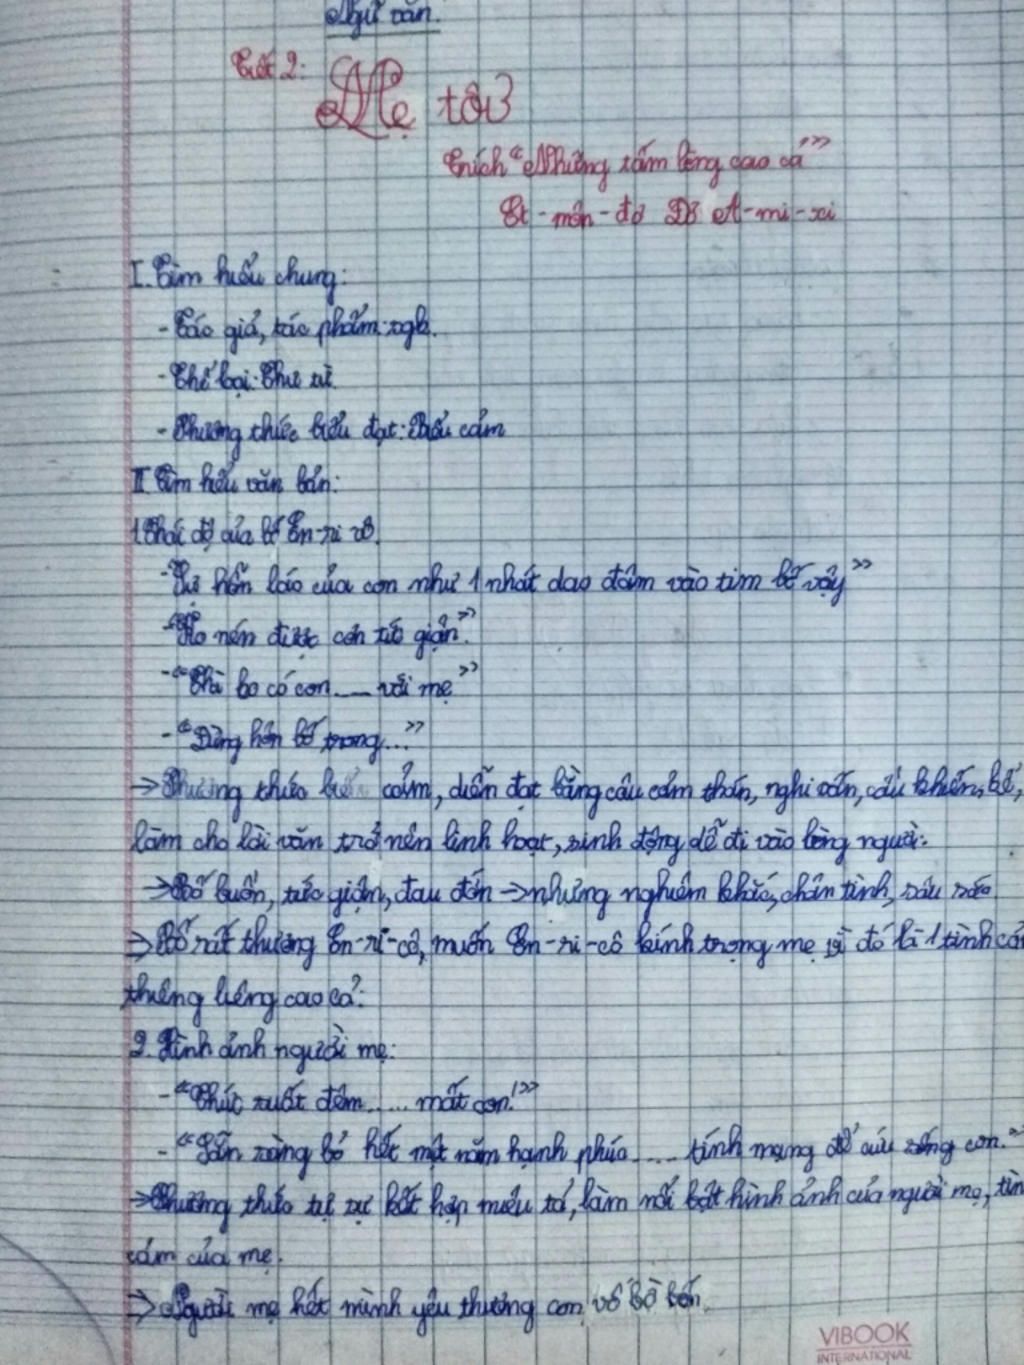 Ngữ văn.
Tiết 2: Mẹ tôi
Trích “Những tấm lòng cao cả”
Ét-môn-đô Đơ A-mi-xi
I. Tìm hiểu chung:
- Tác giả, tác phẩm: sgk.
- Thể loại: Thư từ
- Phương thức biểu đạt: Biểu cảm
II Tìm hiểu văn bản:
1. Thái độ của bố En-ri cô.
- "Sự hỗn láo của con như 1 nhát dao đâm vào tim bố vậy"
- "Ko nén được cơn tức giận".
- "Thà ko có con ..... với mẹ"
- "Đừng hôn bố trong..."
→ Phương thức biểu cảm, diễn đạt bằng câu cảm thán, nghi vấn, cầu khiến, kể,
làm cho lời văn trở nên linh hoạt, sinh động dễ đi vào lòng người.
→ Bố buồn, tức giận, đau đớn → nhưng nghiêm khắc, chân tình, sâu sắc.
⇒ Bố rất thương En-ri-cô, muốn En-ri-cô kính trọng mẹ vì đó là 1 tình
thiêng liêng cao cả.
2. Hình ảnh người mẹ:
- "Thức suốt đêm ..... mất con!"
- "Sẵn sàng bỏ hết một năm hạnh phúc ..... tính mạng để cứu sống con."
→ Phương thức tự sự kết hợp miêu tả, làm nổi bật hình ảnh của người mẹ,
cảm của mẹ.
⇒ Người mẹ hết mình yêu thương con vô bờ bến.
VIBOOK
INTERNATIONAL